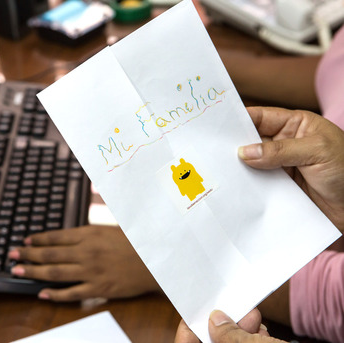 Mi Familia